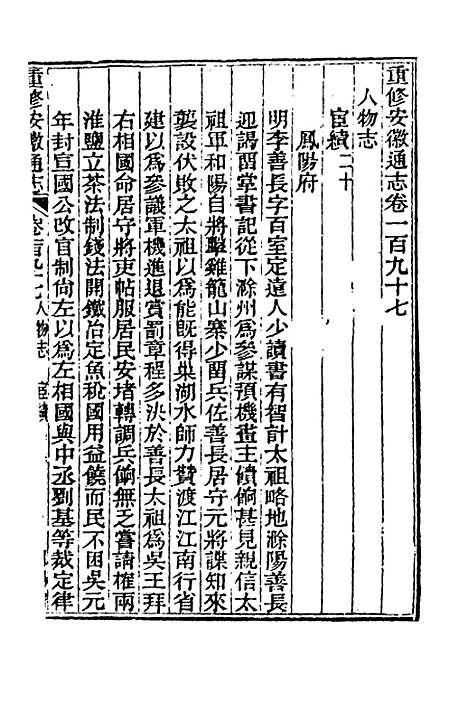 重修安徽通志卷一百九十七
人物志
宦績二十
鳳陽府
明李善長字百室定遠人少讀書有智計太祖略地滁陽善長
迎謁留掌書記從下滁州爲參謀預機畫主饋餉甚見親信太
祖軍和陽自將擊雞籠山寨少留兵佐善長居守元將諜知來
襲設伏敗之太祖以爲能旣得巢湖水師力贊渡江江南行省
建以爲參議軍機進退賞罰章程多決於善長太祖爲吳王拜
右相國命居守將吏帖服居民安堵轉調兵餉無乏嘗請榷兩
淮鹽立茶法制錢法開鐵冶定魚稅國用益饒而民不困吳元
年封宣國公改官制尙左以爲左相國與中丞劉基等裁定律
重修安徽通志 卷一百九十七 人物志 宦績